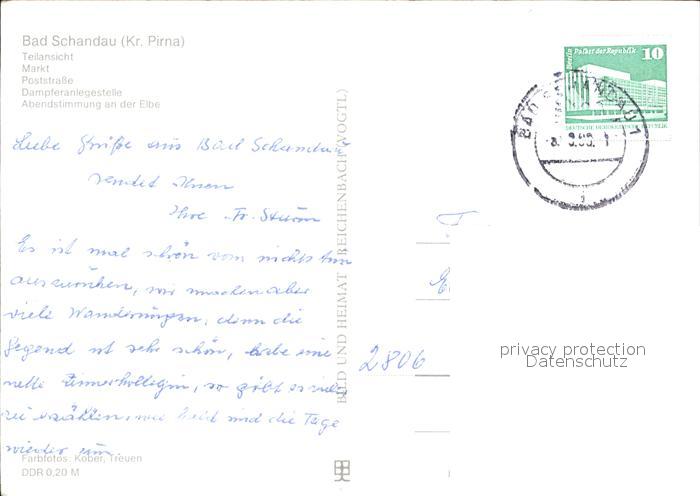 Bad Schandau (Kr. Pirna)
Teilansicht
Markt
Poststraße
Dampferanlegestelle
Abendstimmung an der Elbe
Liebe Grüße aus Bad Schandau
sendet Ihnen
Ihre Fr. Sturm
Es ist mal schön vom nichts tun
auszuruhen, wir machen aber
viele Wanderungen, denn die
Gegend ist sehr schön, habe eine
nette Zimmerkollegin, so gibt es viel
zu erzählen, wie bald sind die Tage
wieder um.
Farbfotos: Kober, Treuen
DDR 0,20 M
BILD UND HEIMAT REICHENBACH (VOGTL)
Berlin Palast der Republik 10
DEUTSCHE DEMOKRATISCHE REPUBLIK
BAD SCHANDAU 1
2806
privacy protection
Datenschutz